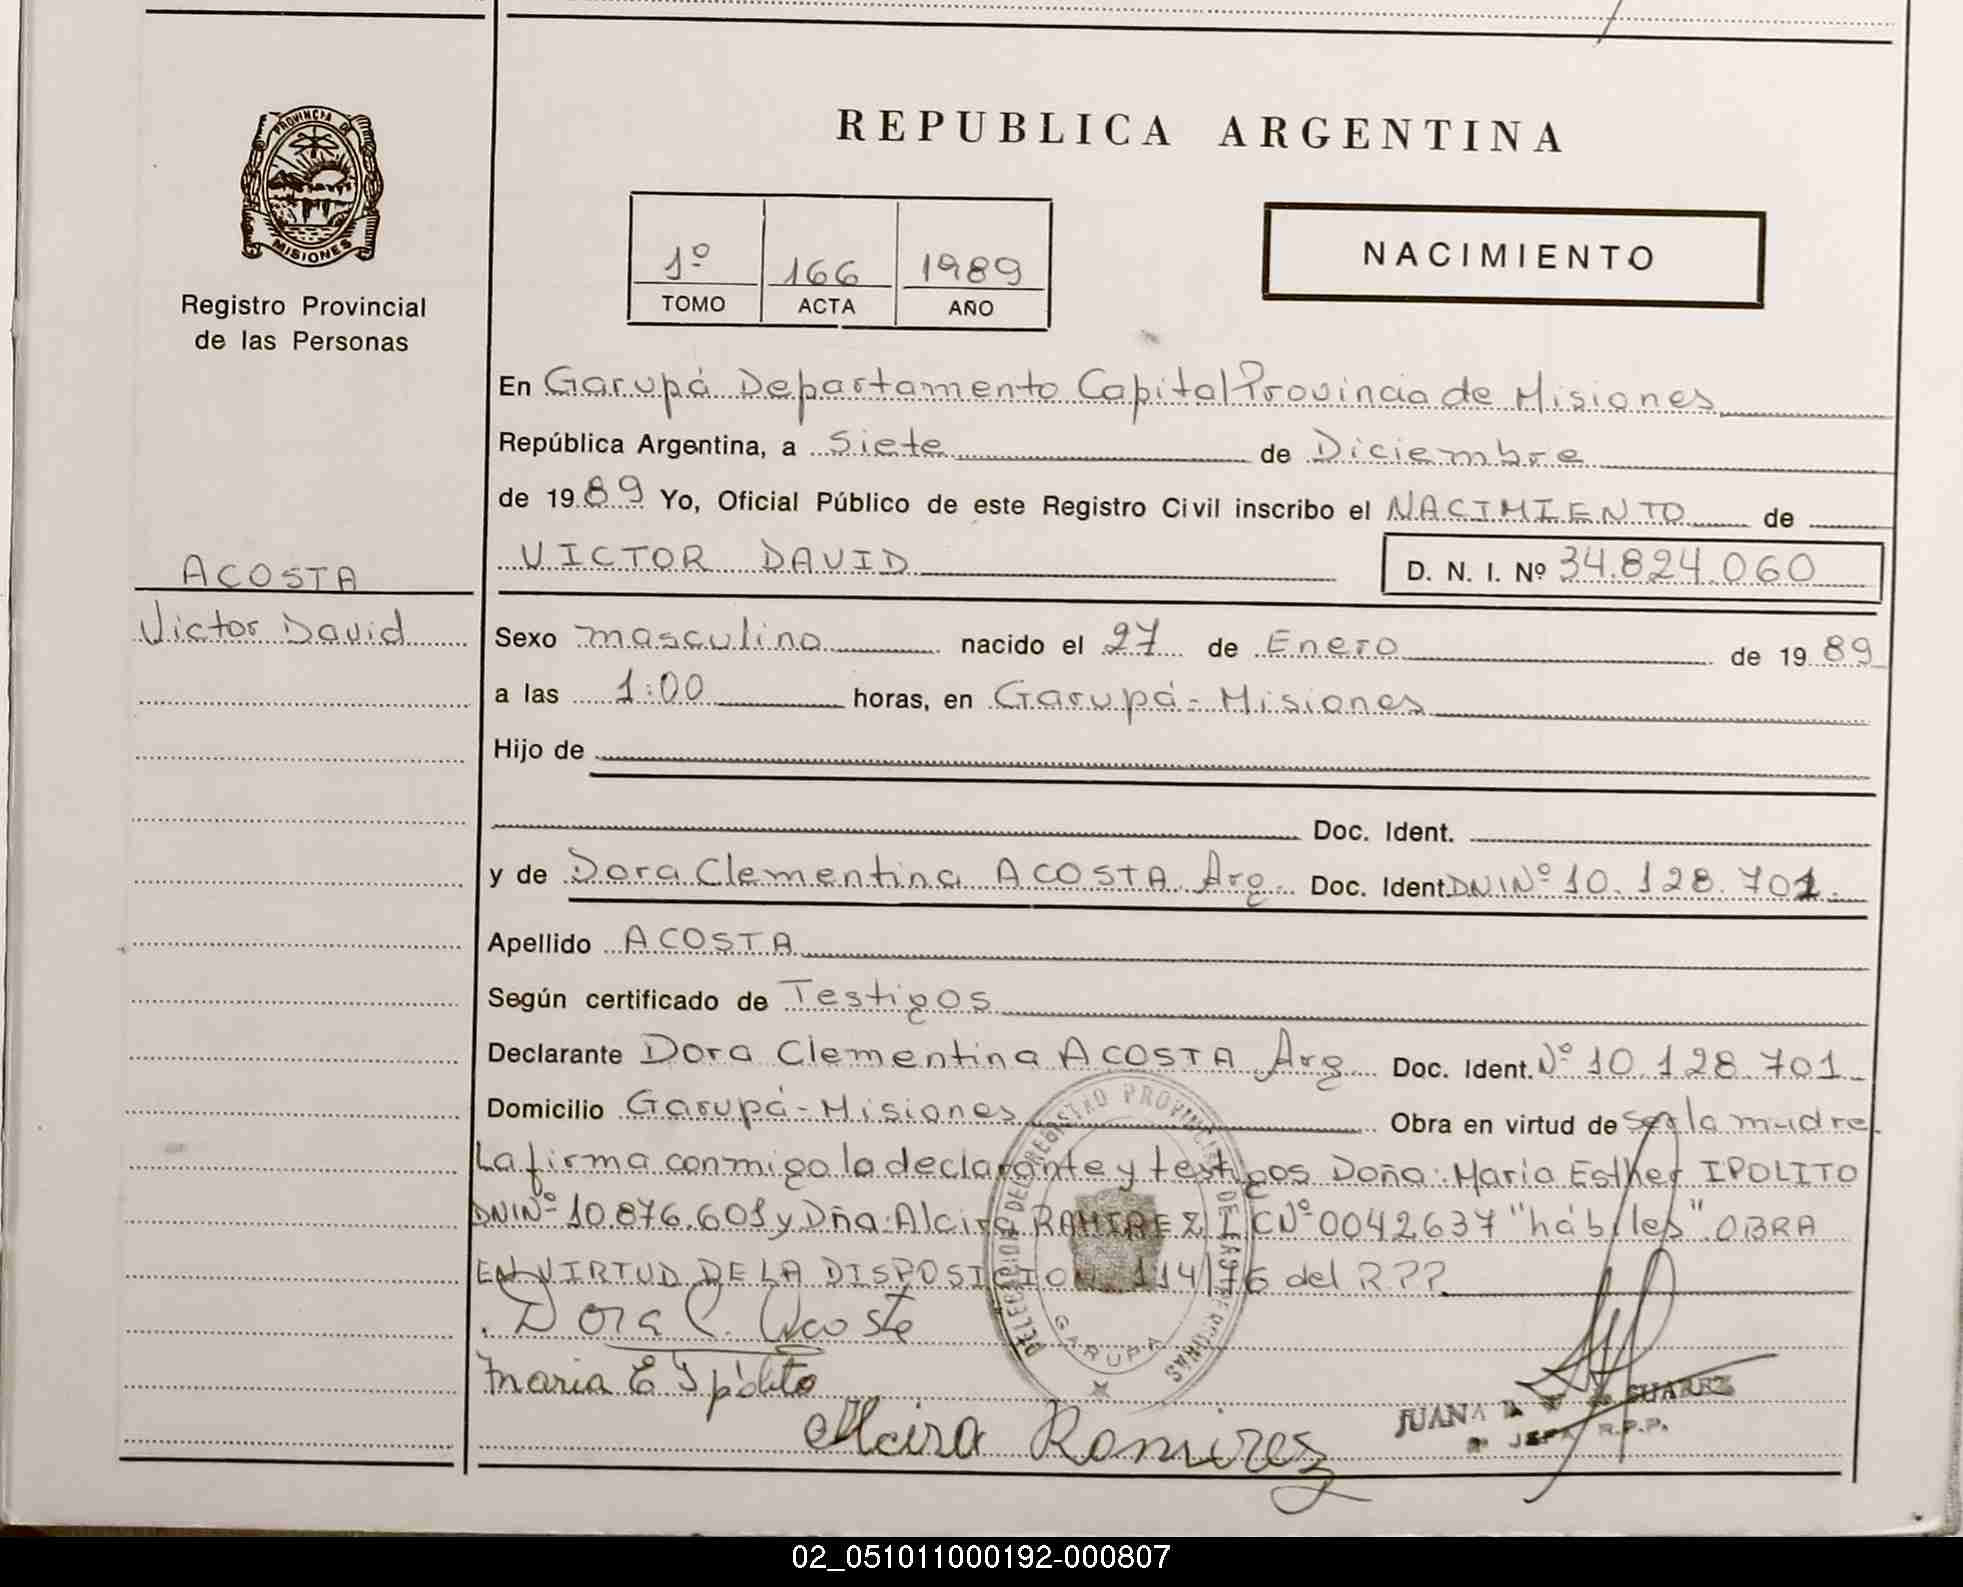 PROVINCIA DE
MISIONES
Registro Provincial
de las Personas
ACOSTA
Victor David
REPUBLICA ARGENTINA
1º 166 1989
TOMO ACTA AÑO
NACIMIENTO
En Garupá Departamento Capital Provincia de Misiones
República Argentina, a Siete de Diciembre
de 1989 Yo, Oficial Público de este Registro Civil inscribo el NACIMIENTO de
VICTOR DAVID D. N. I. Nº 34.824.060
Sexo masculino nacido el 27 de Enero de 1989
a las 1:00 horas, en Garupá - Misiones
Hijo de
Doc. Ident.
y de Dora Clementina ACOSTA Arg. Doc. Ident. DNI Nº 10.128.701.
Apellido ACOSTA
Según certificado de Testigos
Declarante Dora Clementina ACOSTA Arg Doc. Ident. Nº 10.128.701
Domicilio Garupá - Misiones Obra en virtud de ser la madre
La firma conmigo la declarante y testigos Doña: Maria Esther IPOLITO
DNI Nº 10.876.601 y Dña: Alcira RAMIREZ I C Nº 0042637 "hábiles". OBRA
EN VIRTUD DE LA DISPOSICION 114/76 del RPP.
Dora C. Acosta
Maria E Ipólito
Alcira Ramirez
DELEGACION DEL REGISTRO PROVINCIAL DE LAS PERSONAS
GARUPA
JUANA SUAREZ
JEFA R.P.P.
02_051011000192-000807